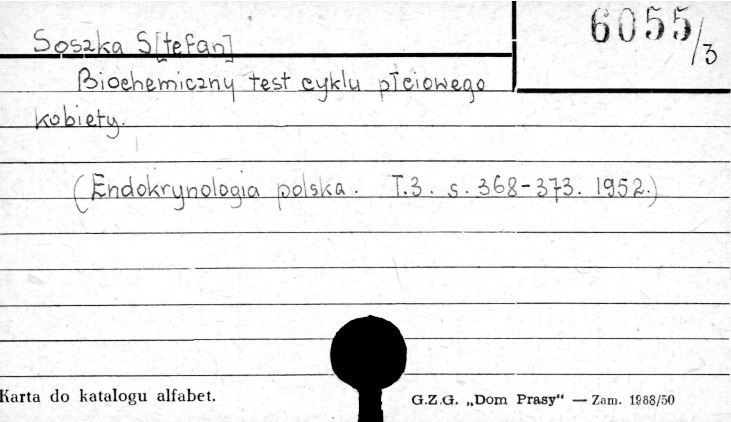 6055/3
Soszka S[tefan]
Biochemiczny test cyklu płciowego
kobiety.
(Endokrynologia polska. T.3. s. 368-373. 1952.)
Karta do katalogu alfabet.
G.Z.G. „Dom Prasy" — Zam. 1988/50